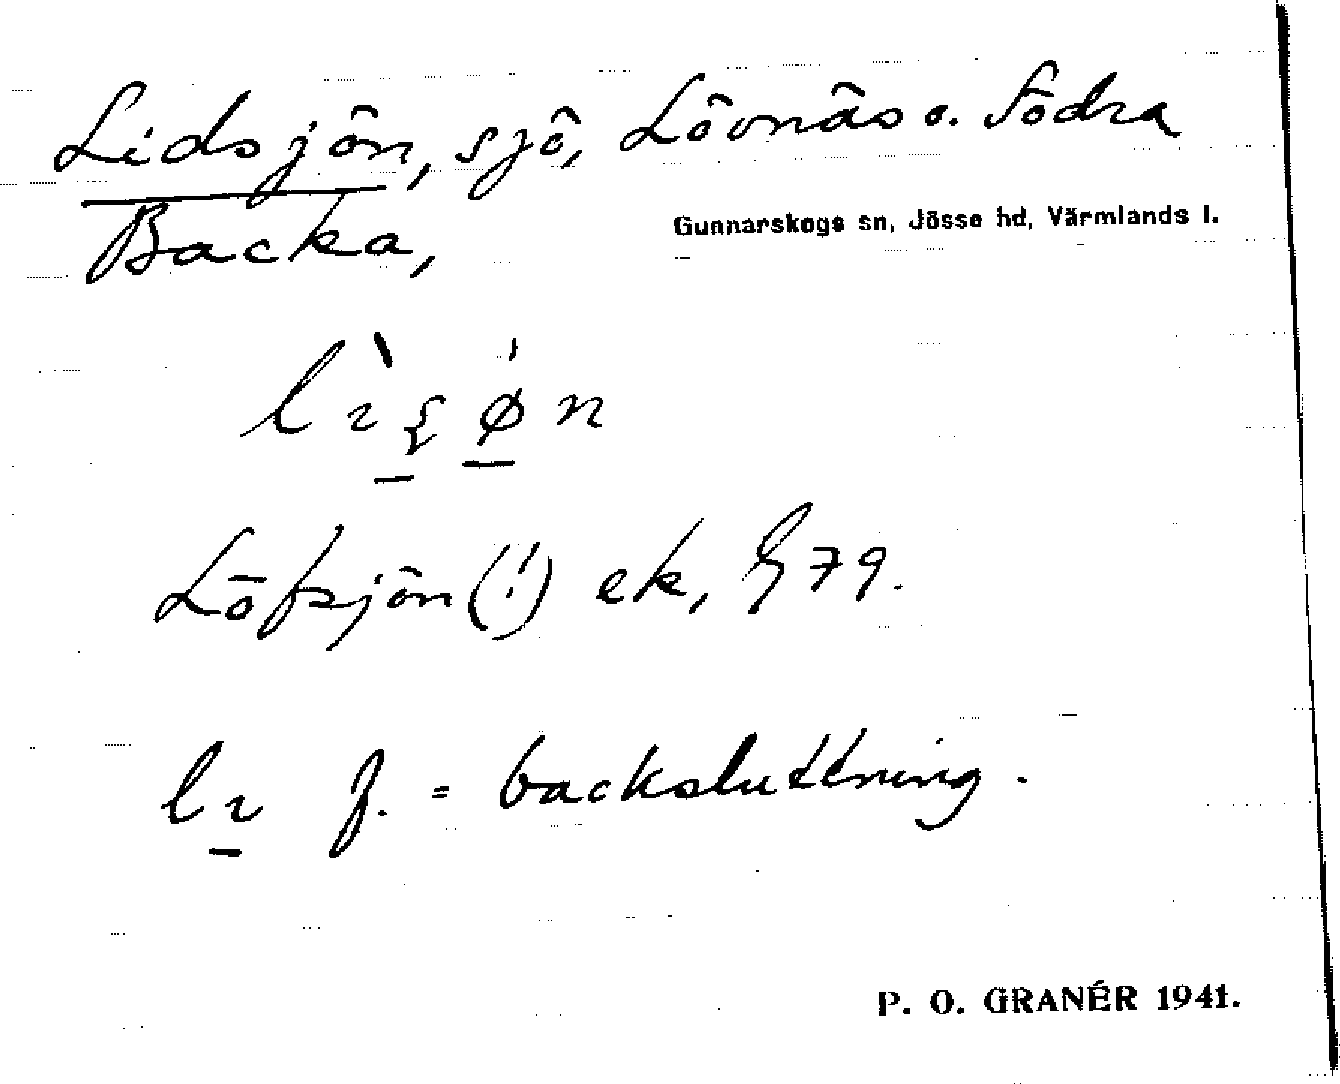 Lidsjön, sjö, Lövnäs o. Södra
Backa,
Gunnarskogs sn, Jösse hd, Värmlands l.
Löfsjön(!) ek, § 79.
f. = backsluttning.
P. O. GRANÉR 1941.